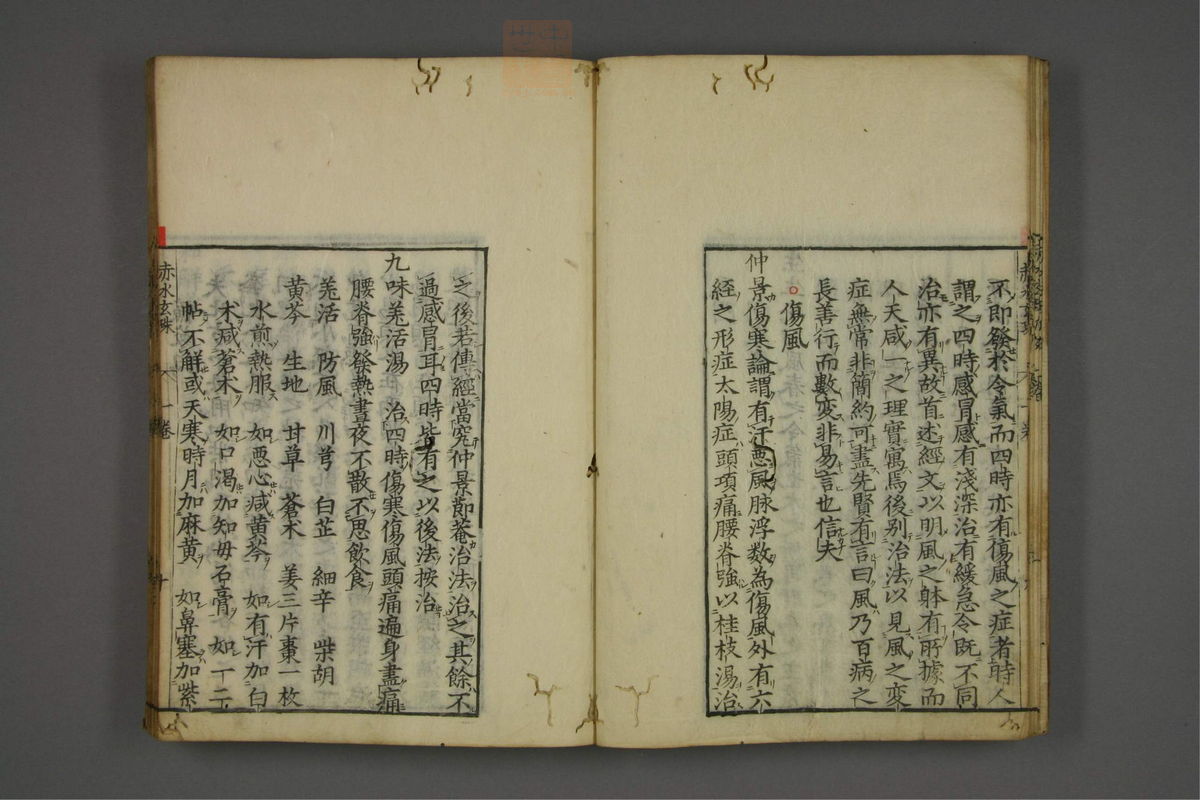 不即發於令氣而四時亦有傷風之症者時人
謂之四時感冒感有淺深治有緩急令既不同
治亦有異故首述經文以明風之躰有所據而
人天咸一之理實寓焉後別治法以見風之變
症無常非簡約可盡先賢有言曰風乃百病之
長善行而數變非易言也信夫
○傷風
仲景傷寒論謂有汗惡風脉浮数為傷風外有六
經之形症太陽症頭項痛腰脊強以桂枝湯治
之後若傳經當究仲景節菴治法治之其餘不
過感冒耳四時皆有之以後法按治
九味羌活湯 治四時傷寒傷風頭痛遍身盡痛
腰脊強發熱晝夜不散不思飲食
羌活 防風 川芎 白芷 細辛 柴胡
黄芩 生地 甘草 蒼朮 姜三片棗一枚
水煎熱服 如悪心減黄芩 如有汗加白
朮减蒼朮 如口渴加知毋石膏 如一二
帖不解或天寒時月加麻黄 如鼻塞加紫
赤水玄珠 一卷 十